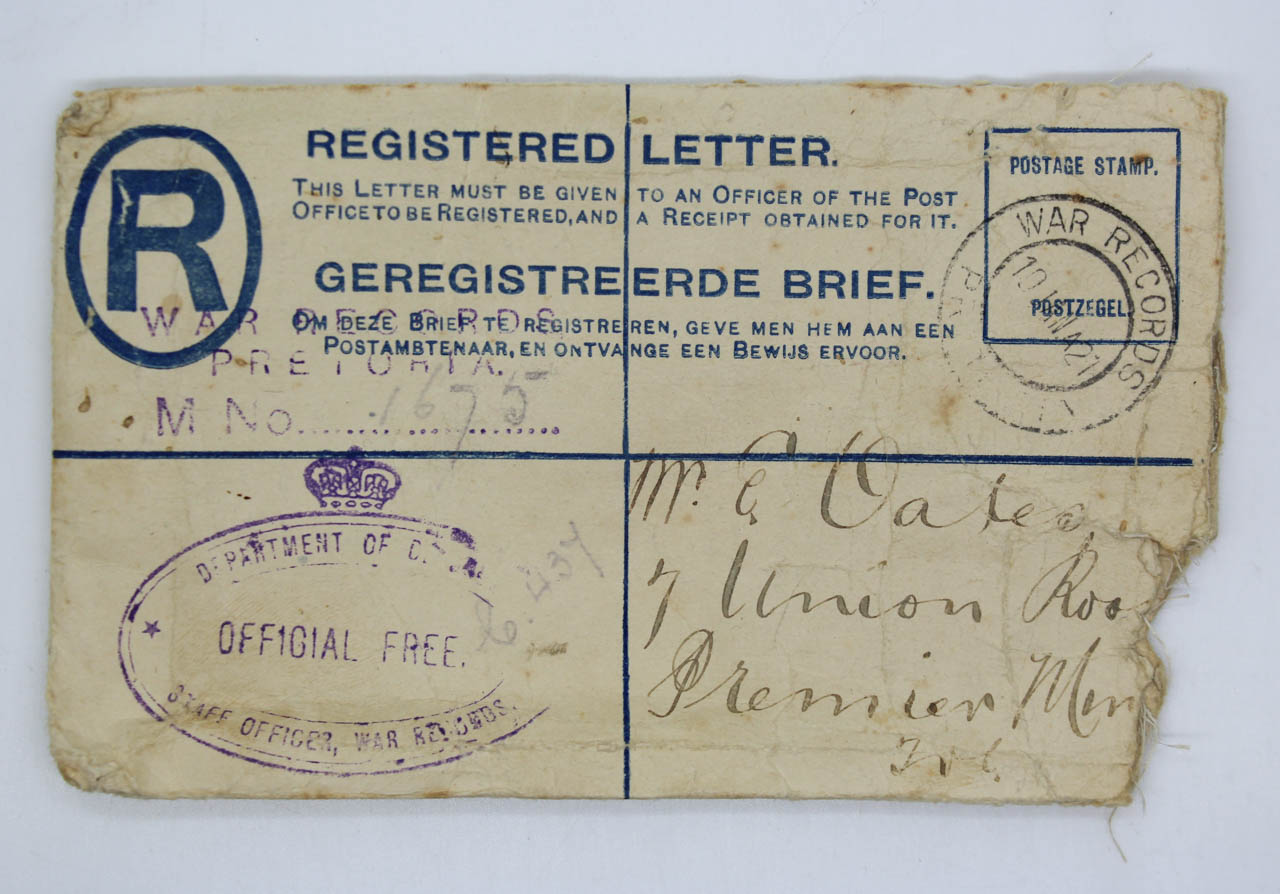 R
REGISTERED LETTER.
THIS LETTER MUST BE GIVEN TO AN OFFICER OF THE POST
OFFICE TO BE REGISTERED, AND A RECEIPT OBTAINED FOR IT.
GEREGISTREERDE BRIEF.
OM DEZE BRIEF TE REGISTREREN, GEVE MEN HEM AAN EEN
POSTAMBTENAAR, EN ONTVANGE EEN BEWIJS ERVOOR.
POSTAGE STAMP.
POSTZEGEL.
WAR RECORDS
10 MA 21
WAR RECORDS
PRETORIA.
M No. 1675
DEPARTMENT OF
OFFICIAL FREE.
STAFF OFFICER, WAR RECORDS.
Mr. E Oates
7 Union Roa
Premier Min